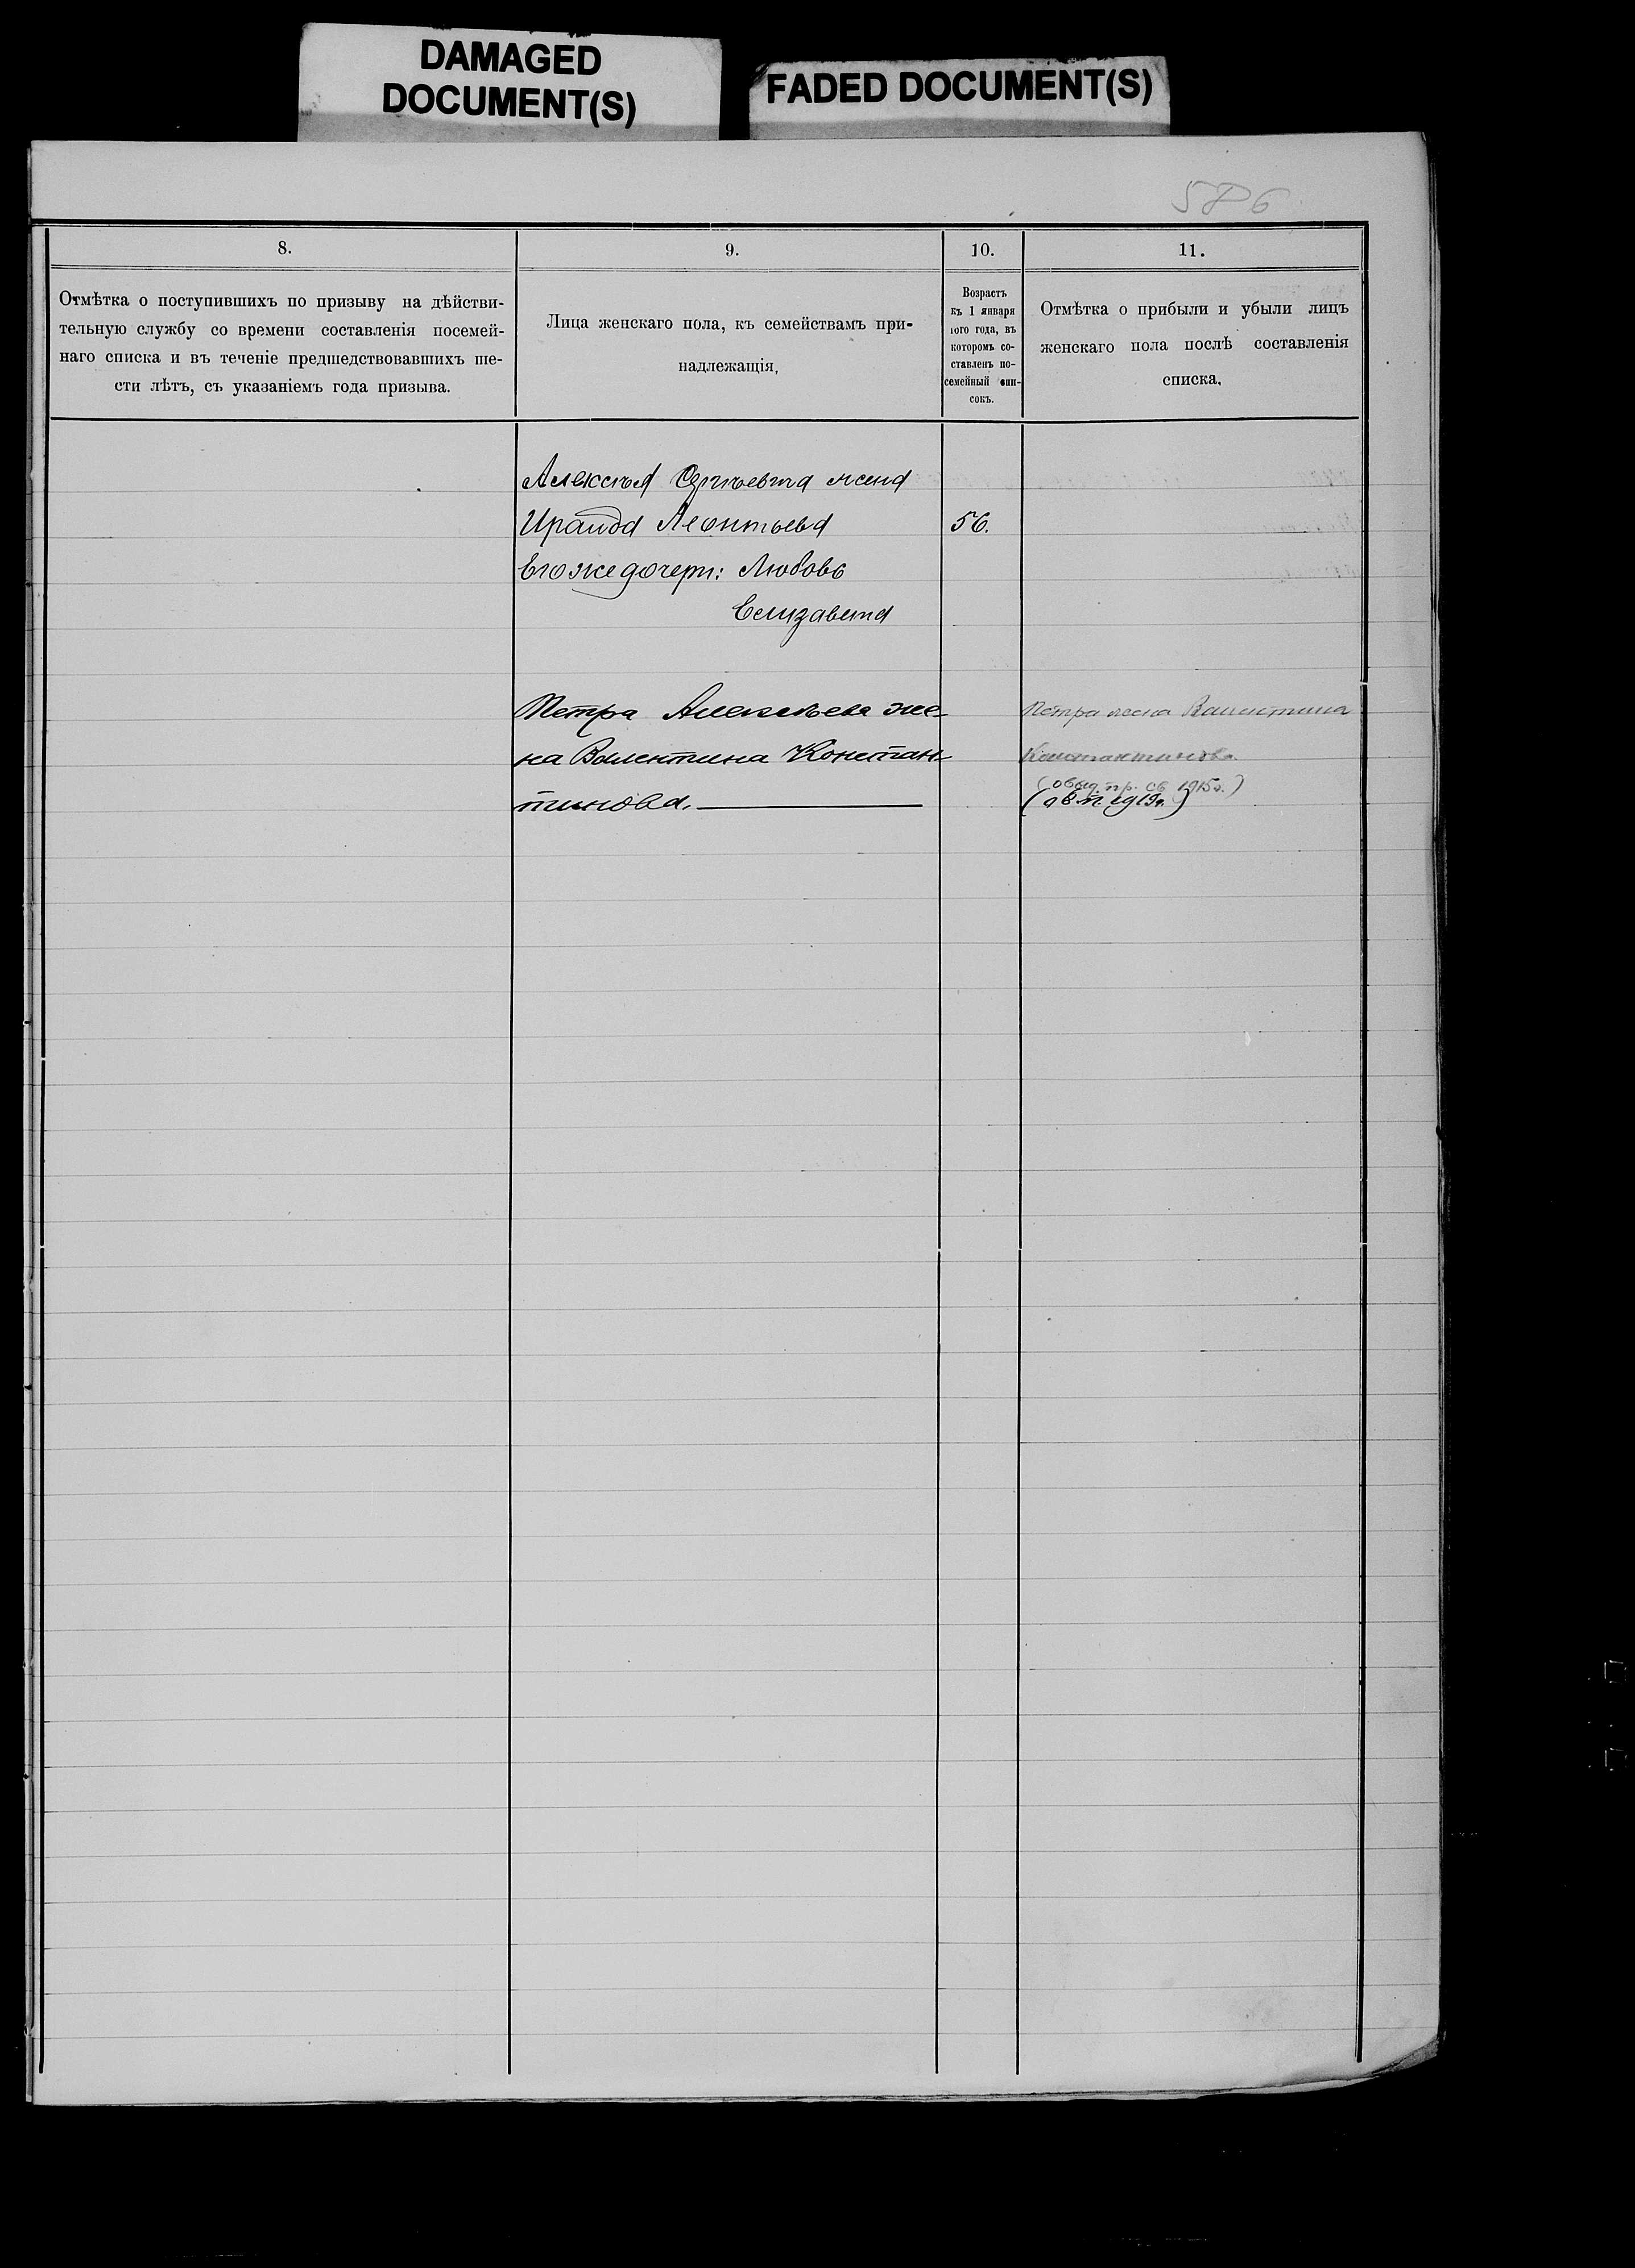 DAMAGED
DOCUMENT(S)
FADED DOCUMENT(S)
586
8.
Отмѣтка о поступившихъ по призыву на дѣйстви-
тельную службу со времени составленія посемей-
наго списка и въ теченіе предшедствовавшихъ ше-
сти лѣтъ, съ указаніемъ года призыва.
9.
Лица женскаго пола, къ семействамъ при-
надлежащія,
10.
Возрастъ
къ 1 января
того года, въ
которомъ со-
ставленъ по-
семейный спи-
сокъ.
11.
Отмѣтка о прибыли и убыли лицъ
женскаго пола послѣ составленія
списка,
Алексѣя Сергѣевича жена
Ираида Леонтьева 56.
Его же дочери: Любовь
Елизавета
Петра Алексѣева же-
на Валентина Констан-
тинова.
Петра жена Валентина
Константинова.
1915г.)